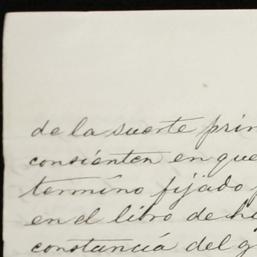 de la suerte prin
consienten en que
termino fijado
en el libro de hi
constancia del g